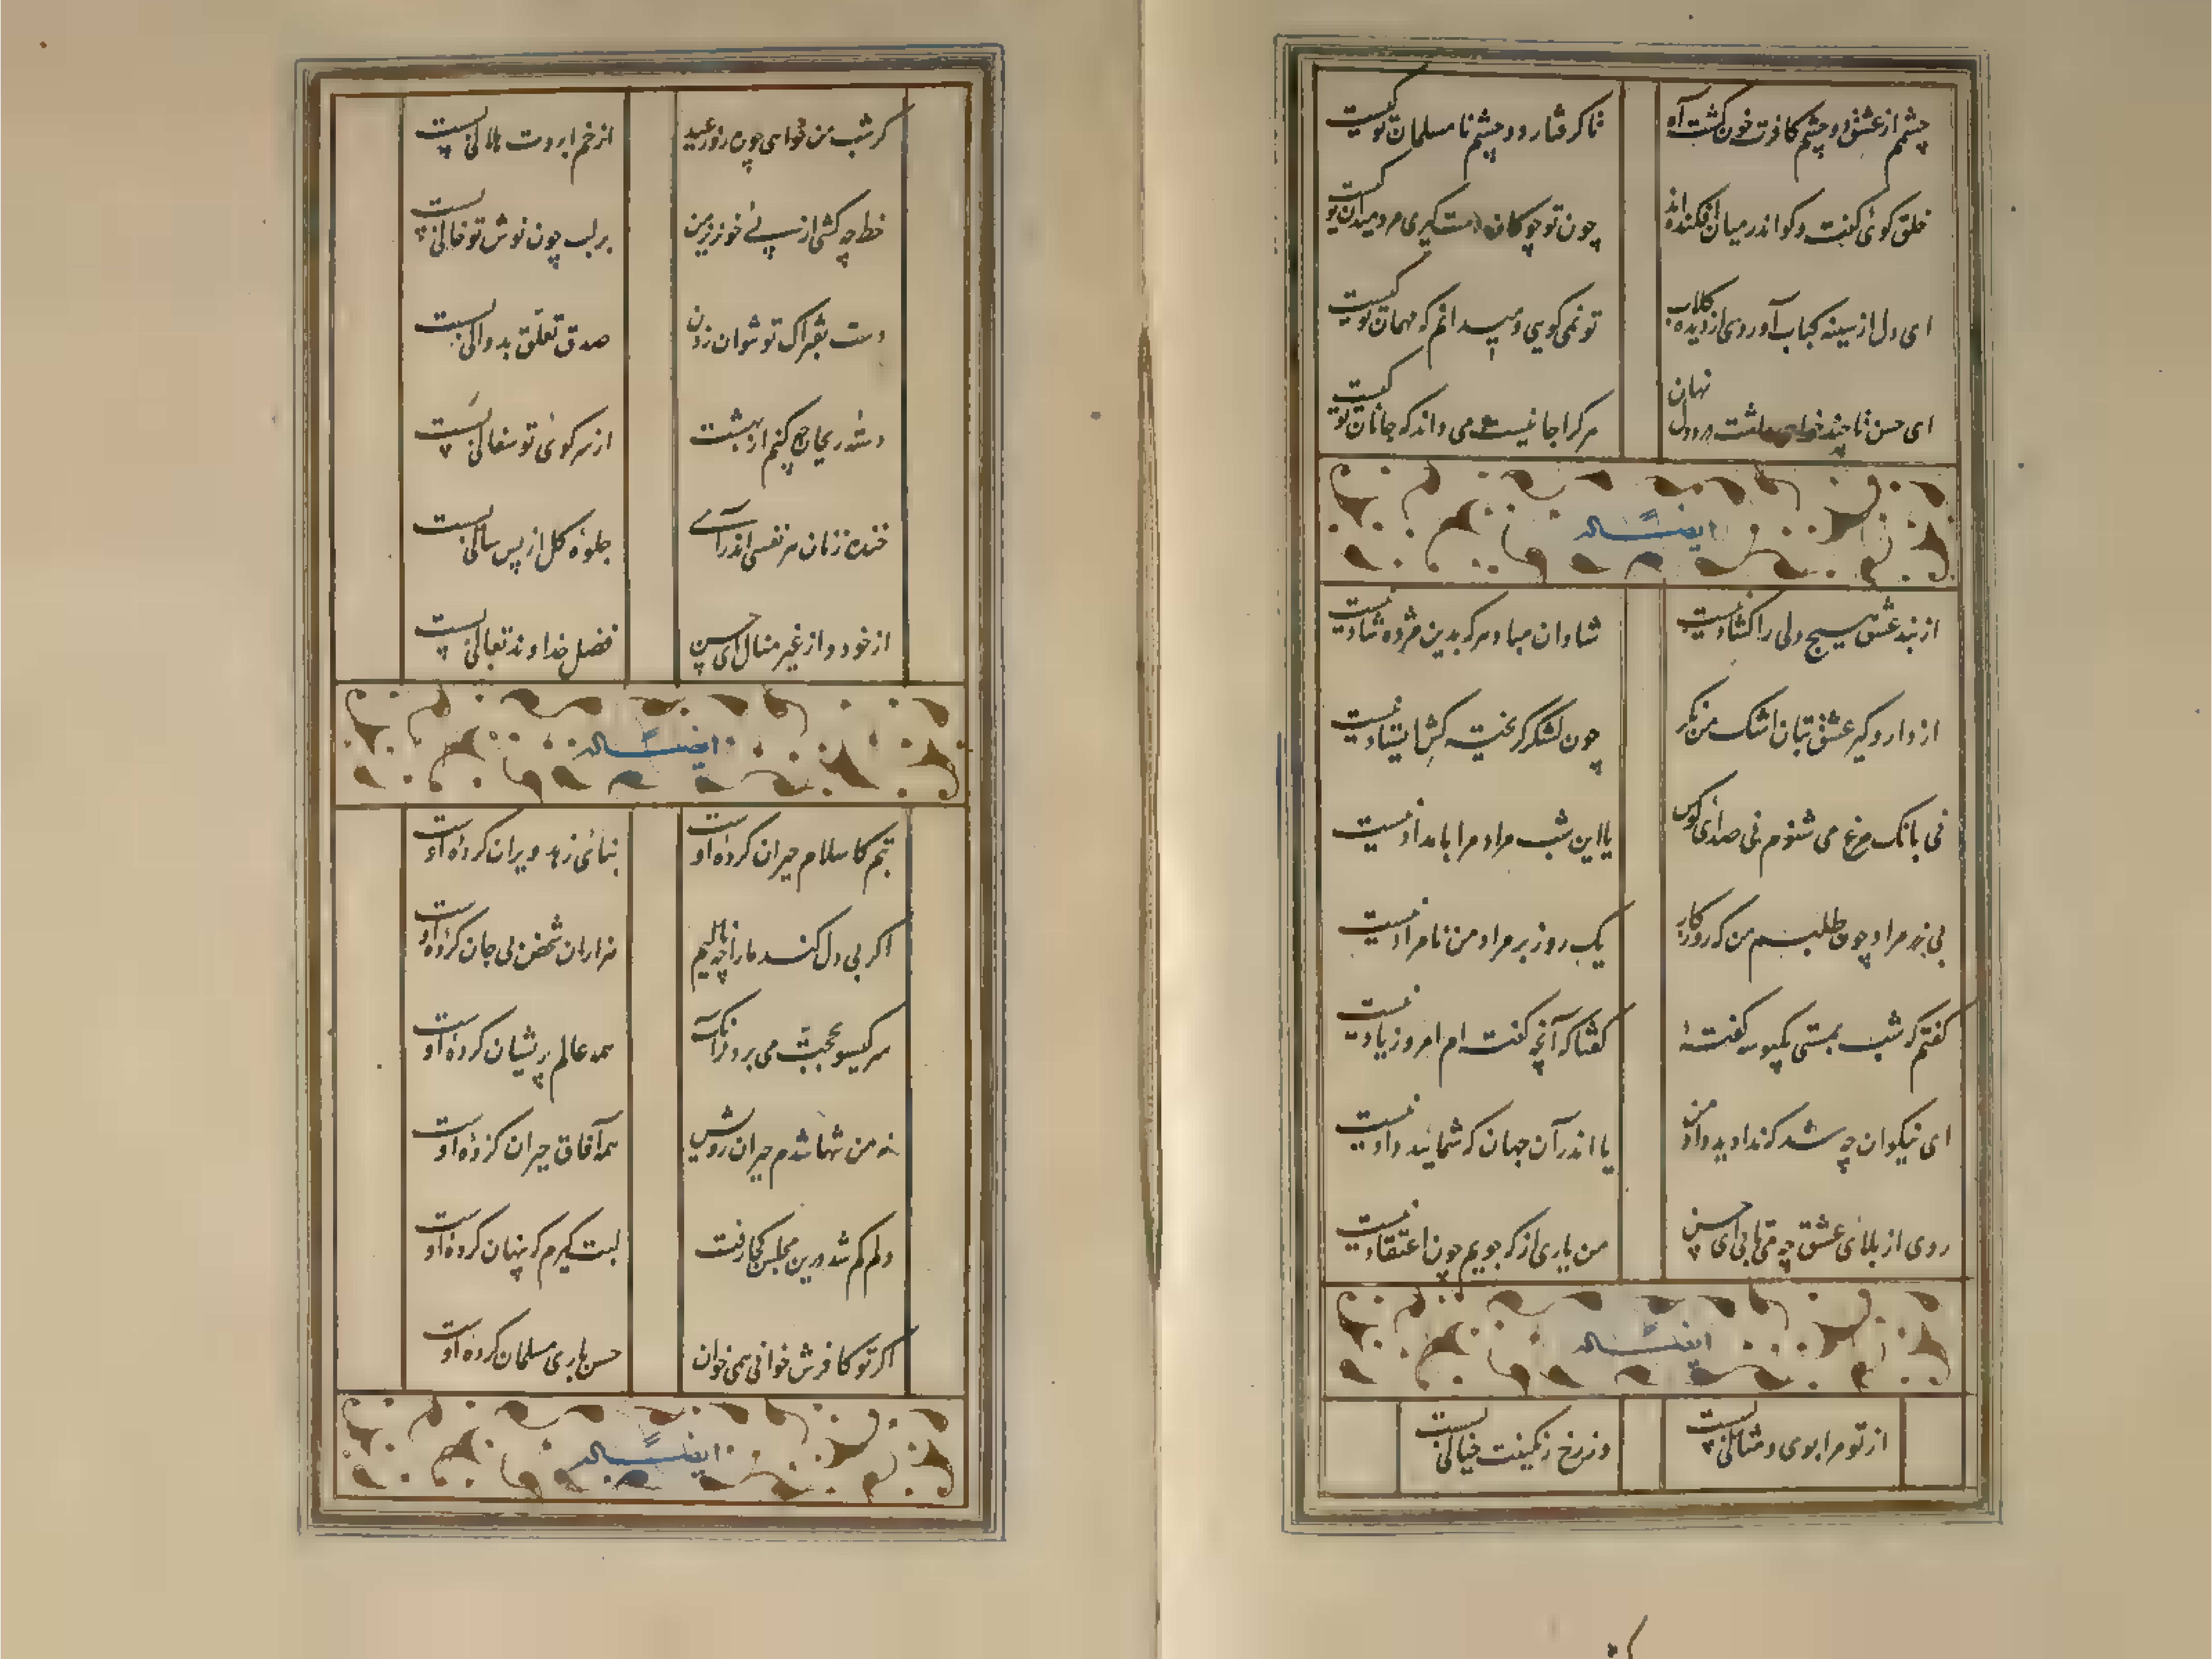 چشمم از عشق دو چشم کافرت خون گشت آه
تا گرفتار دو چشم نامسلمان تو کیست
خلق گوئی گفت و گو اندر میان افکنده اند
چون تو چوگان دست گیری مرد میدان تو کیست
ای دل از سینه کباب آوردی از دیده گلاب
تو نمی گویی و میدانم که مهمان تو کیست
ای حسن تا چند خواهی داشت در دل نهان
هر کرا جانیست می داند که جانان تو کیست
ایضاً له
از بند عشق هیچ دلی را گشاد نیست
شادان مباد هر که بدین مژده شاد نیست
از دار و گیر عشق بتان اشک من نگر
چون لشکر گریخته کش ایستاد نیست
نی بانگ مرغ می شنوم نی صدای کوس
یا این شب مراد مرا بامداد نیست
بی زر مراد چون طلبم من که روزگار
یک روز بر مراد من نامراد نیست
گفتم که شب بمستی یکبوسه گفتهٔ
گفتا که آنچه گفته ام امروز یاد نیست
ای نیکوان چه شد که نداد ید داد من
یا اندر آن جهان که شمائید داد نیست
روی از بلای عشق چه می تابی ای حسن
من یاری از که جویم چون اعتقاد نیست
ایضاً له
از تو مرا بوی وصالی بست
وز رخ رنگینت خیالی بست
کر
گر شب من خواهی چون روز عید
از خم ابروت هلالی بست
خط چه کشی از پئے خونریز من
بر لب چون نوش تو خالی بست
دست بفتراک تو نتوان زدن
صدق تعلق بدوالی بست
دسته ریحان چه کنم از بهشت
از سر کوی تو سفالی بست
خنده زنان هر نفسی اندر آے
جلوه گل از پس سالی بست
از خود و از غیر منال ای حسن
فضل خداوند تعالی بست
ایضاً له
بتم کاسلام حیران کرده اوست
بنائی زهد ویران کرده اوست
اگر بی دل کند ما را چه نالیم
هزاران شخص بی جان کرده اوست
سر گیسو بجنبت می برد زانک
همه عالم پریشان کرده اوست
نه من تنها شدم حیران رویش
همه آفاق حیران کرده اوست
دلم گم شد درین مجلس کجا رفت
لبت گیرم که پنهان کرده اوست
اگر تو کافرش خوانی همی خوان
حسن باری مسلمان کرده اوست
ایضاً له